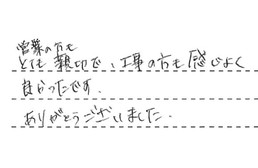 営業の方も
とても親切で、工事の方も感じよく
良かったです。
ありがとうございました。